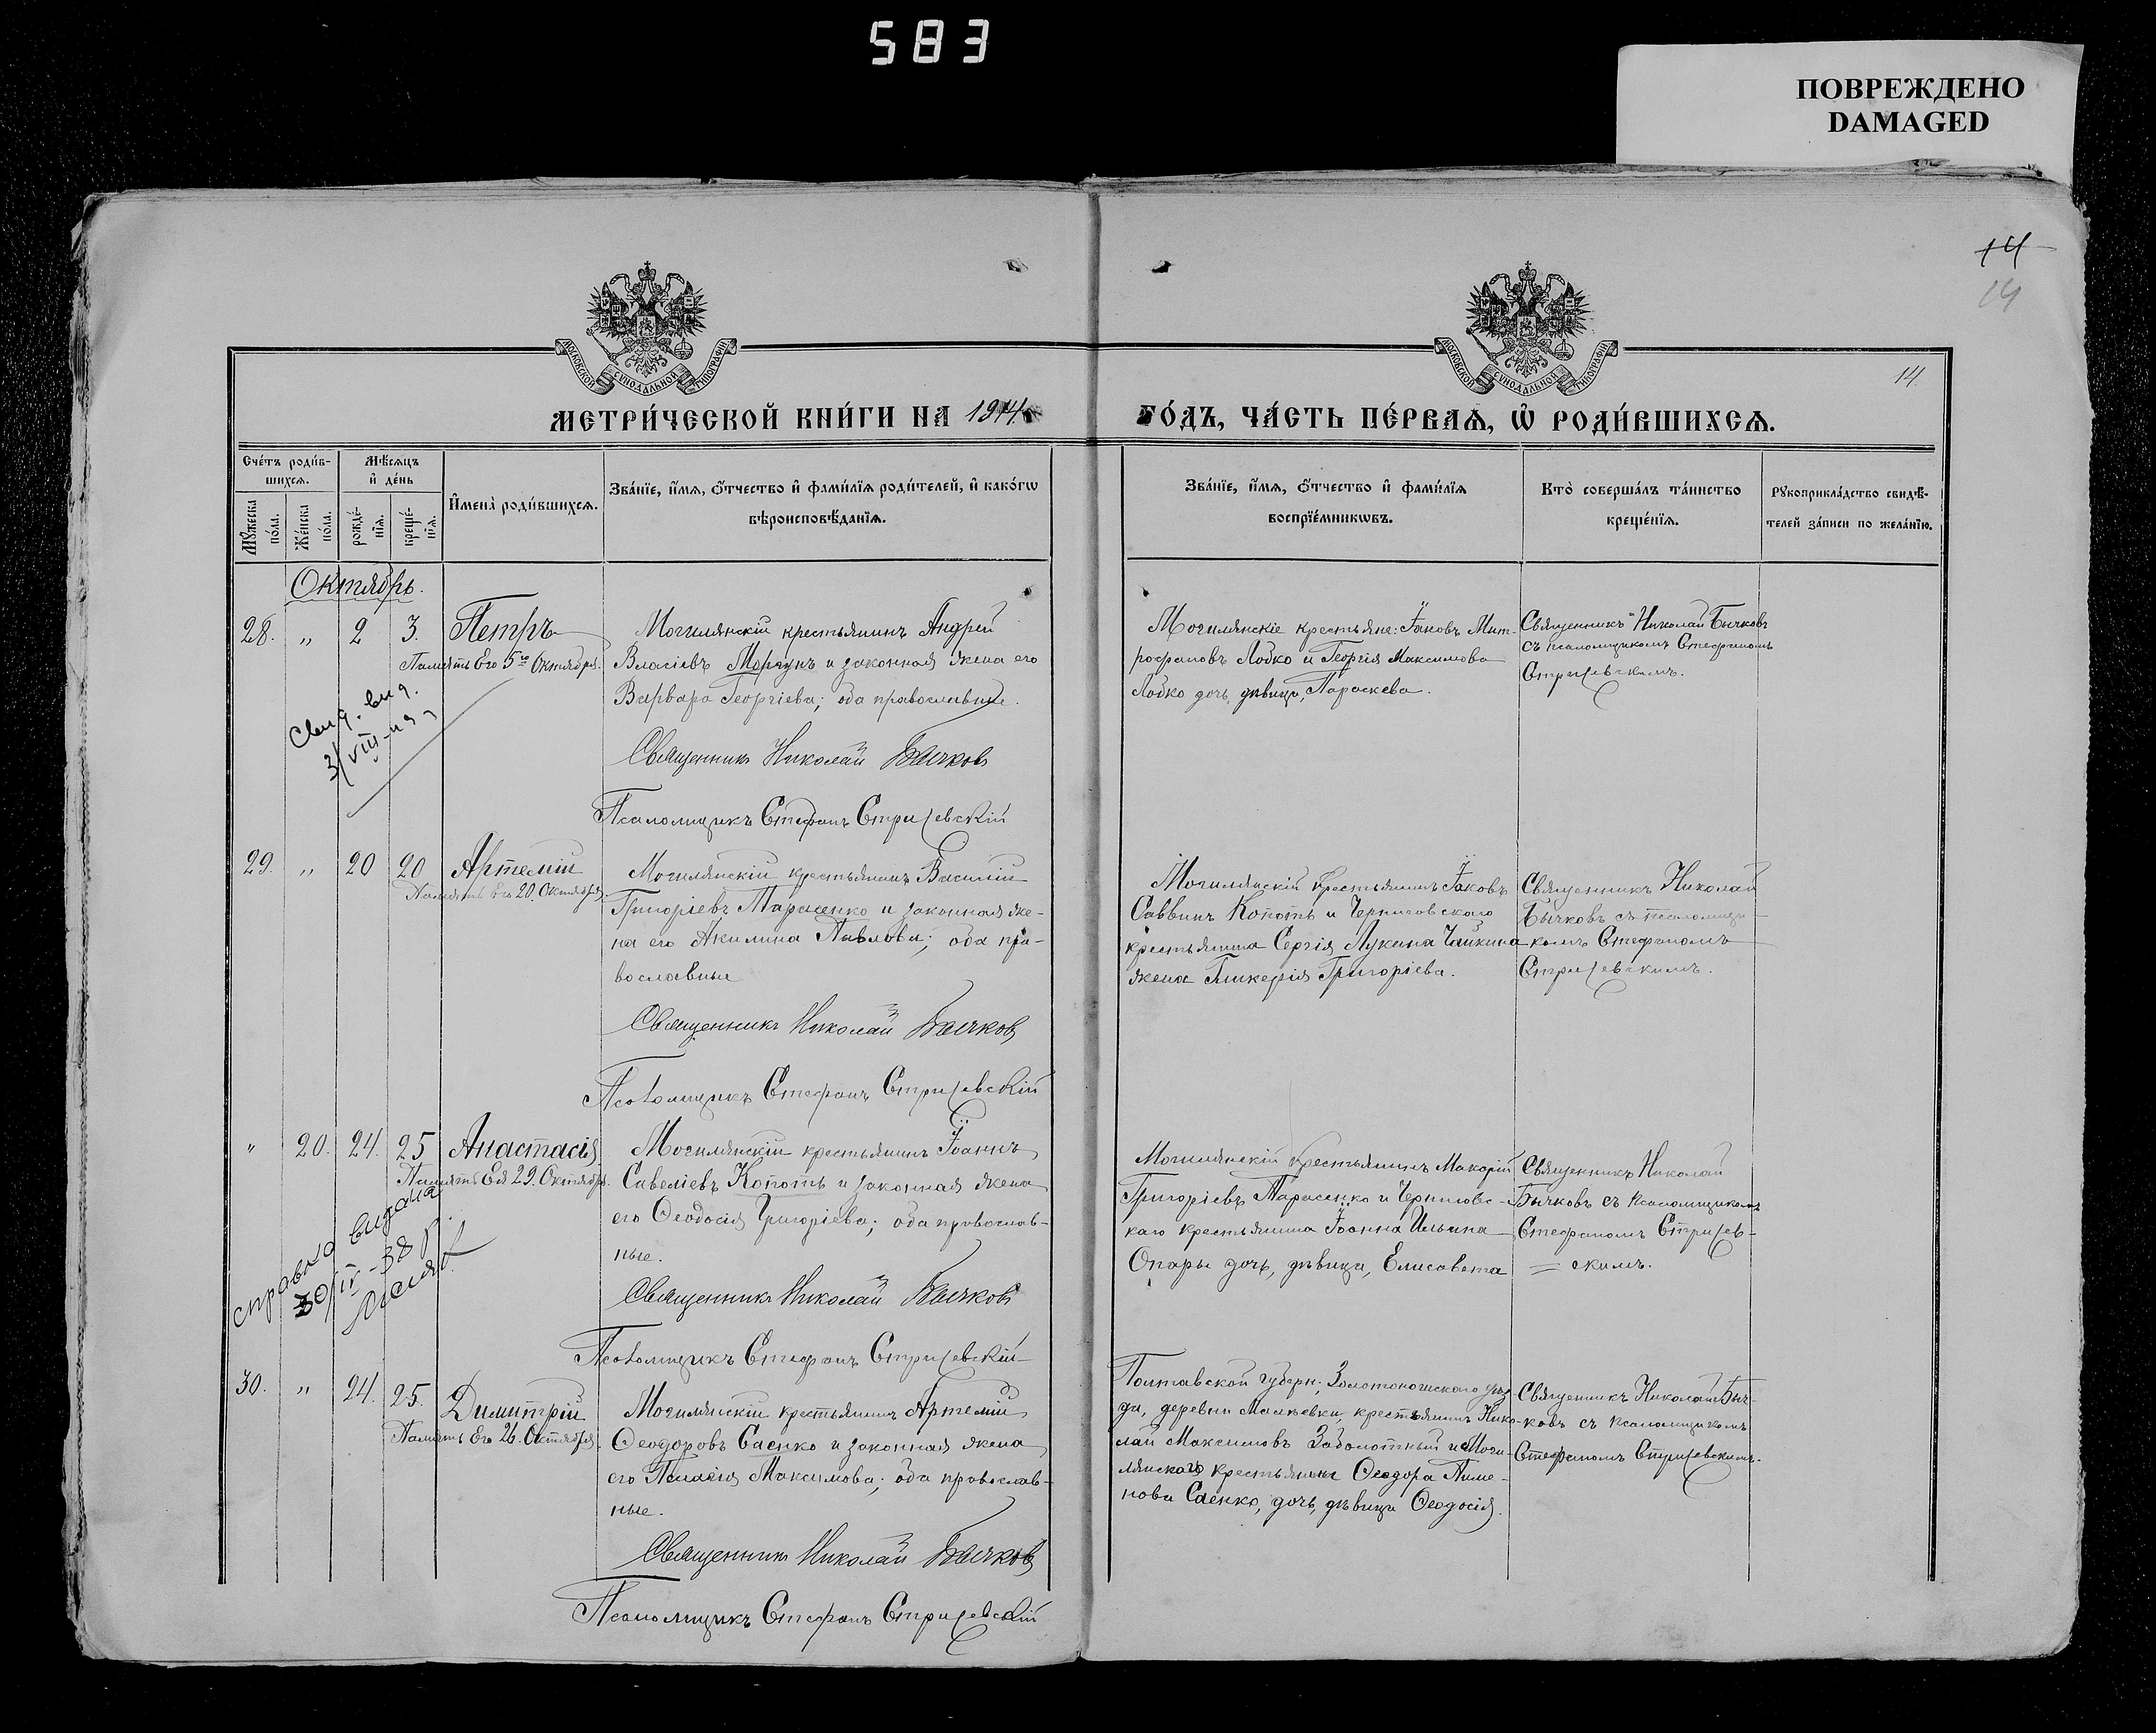 583
ПОВРЕЖДЕНО
DAMAGED
14
14
МОСКОВСКОЙ СУНОДАЛЬНОЙ ТИПОГРАФІИ
МОСКОВСКОЙ СУНОДАЛЬНОЙ ТИПОГРАФІИ
14.
МЕТРИ́ЧЕСКОЙ КНИ́ГИ НА 1914
ГО́ДЪ, ЧА́СТЬ ПЕ́РВАѦ, Ѡ҆ РОДИ́ВШИХСѦ.
Сче́тъ роди́в-
шихсѧ.
Мꙋ́жеска по́ла.
Же́нска по́ла.
Мѣ́сѧцъ
и҆ де́нь
рожде́-
нїѧ.
креще́-
нїѧ.
И҆мена̀ роди́вшихсѧ.
Зва́нїе, и҆́мѧ, ѻ҆́тчество и҆ фами́лїѧ роди́телей, и҆ како́гѡ
вѣроисповѣ́данїѧ.
Зва́нїе, и҆́мѧ, ѻ҆́тчество и҆ фами́лїѧ
воспрїе́мникѡвъ.
Кто̀ соверша́лъ та́инство
креще́нїѧ.
Рꙋкоприкла́дство свидѣ́-
телей за́писи по жела́нїю.
Октябрь.
28. „ 2 3. Петръ
Память Его 5го Октября.
Могилянскій крестьянинъ Андрей
Власіевъ Моргунъ и законная жена его
Варвара Георгіева; оба православные.
Священникъ Николай Бычковъ
Псаломщикъ Стефанъ Стрижевскій
Могилянскіе крестьяне: Іаковъ Мит-
рофановъ Лобко и Георгія Максимова
Лобко дочь, дѣвица, Параскева.
Священникъ Николай Бычковъ
съ псаломщикомъ Стефаномъ
Стрижевскимъ.
Свид. выд.
3/VIII
29. „ 20 20 Артемій
Память Его 20. Октября.
Могилянскій крестьянинъ Василій
Григоріевъ Тарасенко и законная же-
на его Акилина Павлова; оба пра-
вославные
Священникъ Николай Бычковъ
Псаломщикъ Стефанъ Стрижевскій
Могилянскій крестьянинъ Іаковъ
Саввинъ Копоть и Черниговскаго
крестьянина Сергія Лукина Чайкина
жена Гликерія Григоріева.
Священникъ Николай
Бычковъ съ псаломщи-
комъ Стефаномъ
Стрижевскимъ.
„ 20. 24. 25 Анастасія
Память Ея 29. Октября.
Могилянскій крестьянинъ Іоаннъ
Савеліевъ Копоть и законная жена
его Ѳеодосія Григоріева; оба православ-
ные.
Священникъ Николай Бычковъ
Псаломщикъ Стефанъ Стрижевскій
Могилянскій крестьянинъ Макарій
Григоріевъ Тарасенко и Черниговс-
каго крестьянина Іоанна Ильина
Опары дочь, дѣвица, Елисавета
Священникъ Николай
Бычковъ съ псаломщикомъ
Стефаномъ Стрижев-
скимъ.
справка видана
30/IV-38 р.
30. „ 24. 25. Димитрій
Память Его 26. Октября.
Могилянскій крестьянинъ Артемій
Ѳеодоровъ Саенко и законная жена
его Пелагія Максимова; оба православ-
ные.
Священникъ Николай Бычковъ
Псаломщикъ Стефанъ Стрижевскій
Полтавской губерн., Золотоношскаго уѣз-
да, деревни Мальевки, крестьянинъ Нико-
лай Максимовъ Заболотный и Моги-
лянскаго крестьянина Ѳеодора Пиме-
нова Саенко, дочь, дѣвица Ѳеодосія.
Священникъ Николай Быч-
ковъ съ псаломщикомъ
Стефаномъ Стрижевскимъ.